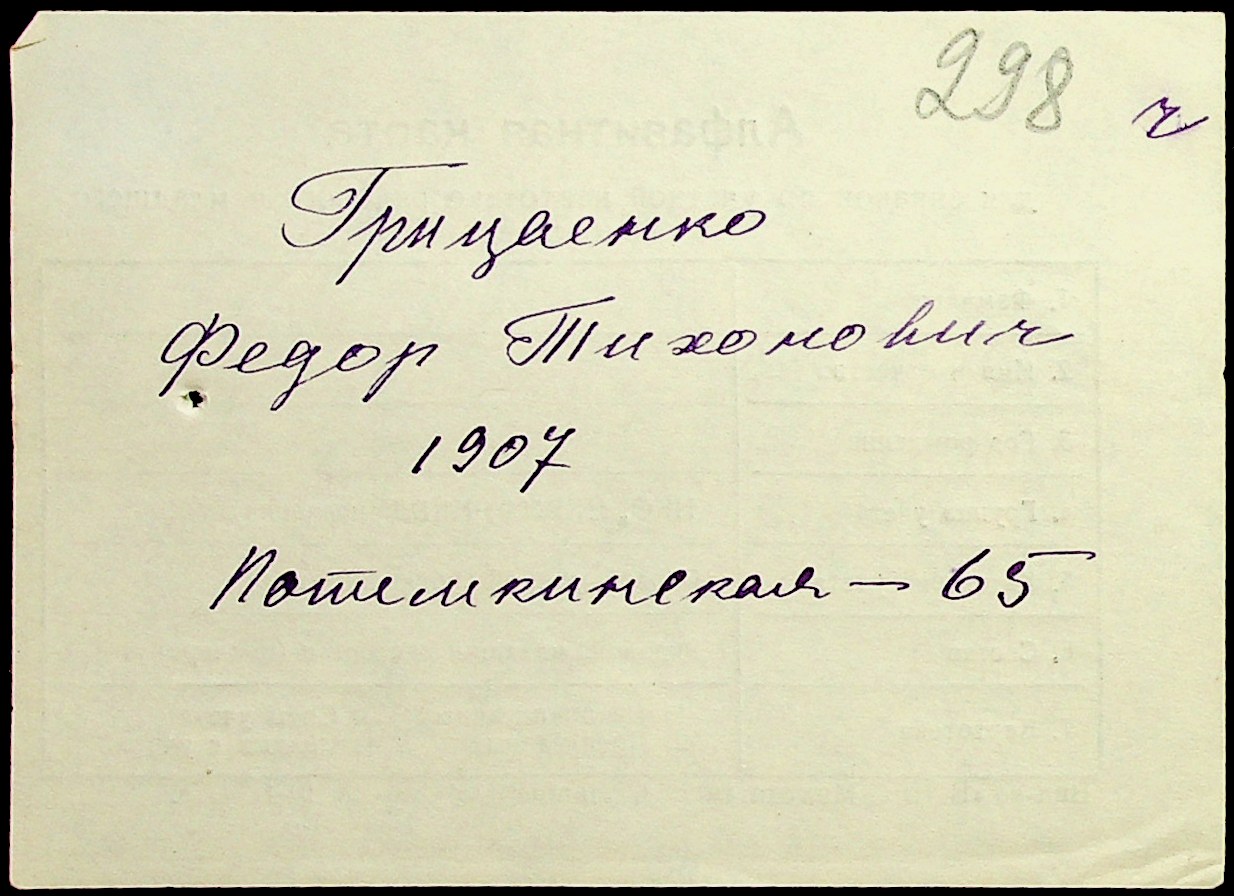 298 ч
Грицаенко
Федор Тихонович
1907
Потемкинская — 65